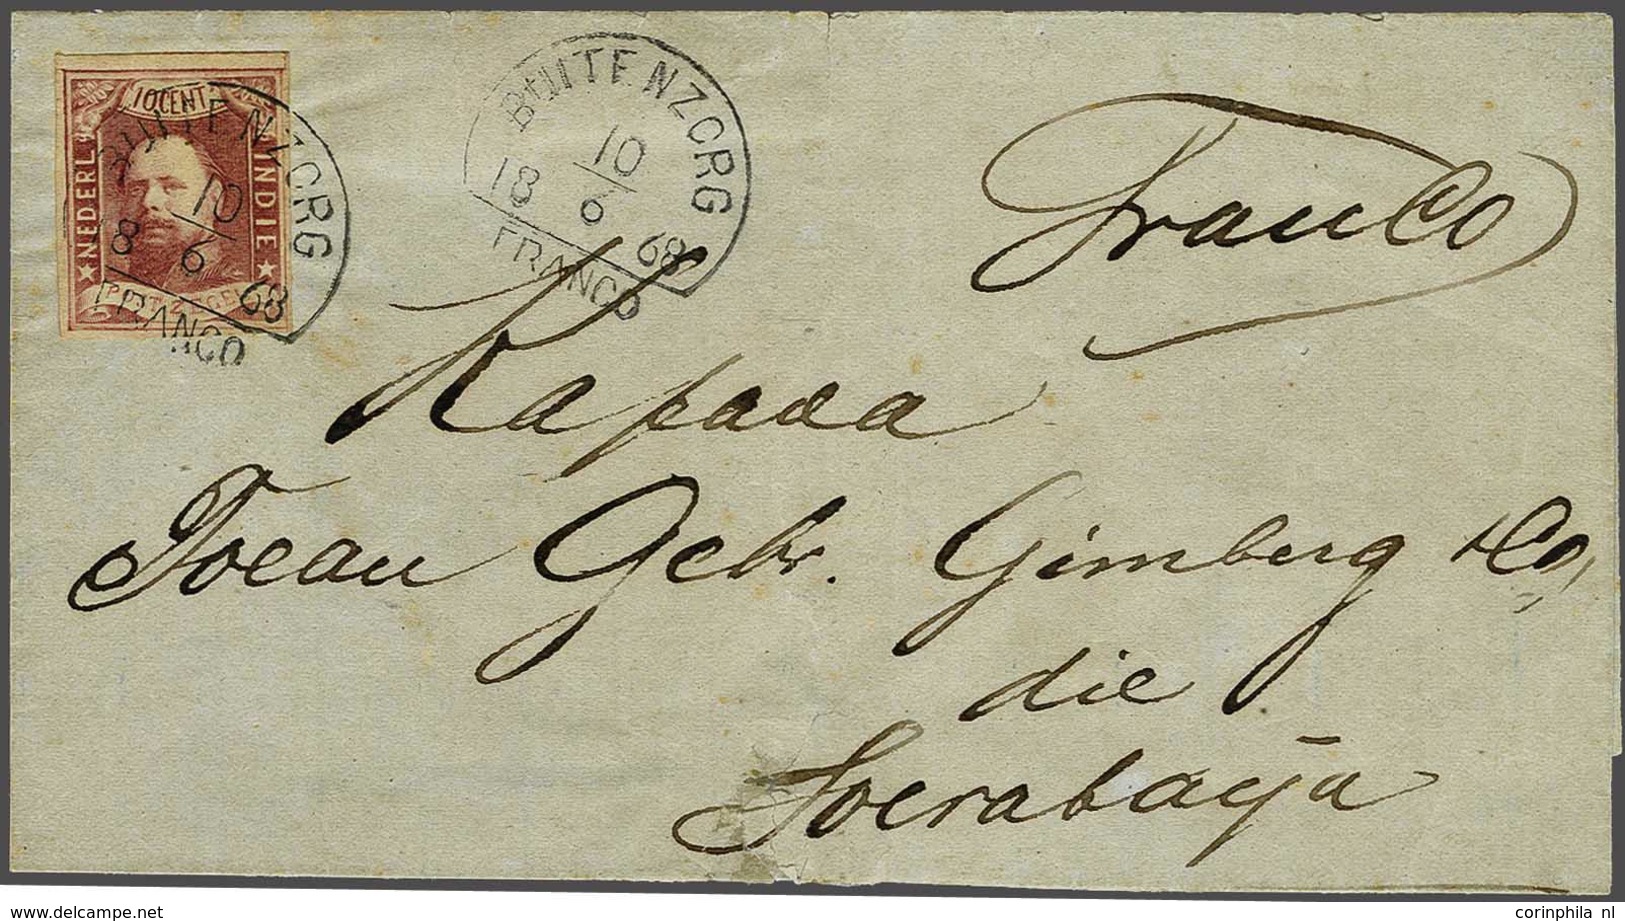 10 CENT
NEDERL.
INDIE
POSTZEGEL
BUITENZORG
10
6
18 68
FRANCO
BUITENZORG
10
6
18 68
FRANCO
Franco
Kapada
Toean Gebr. Gimberg & Co,
die
Soerabaija
corinphila nl